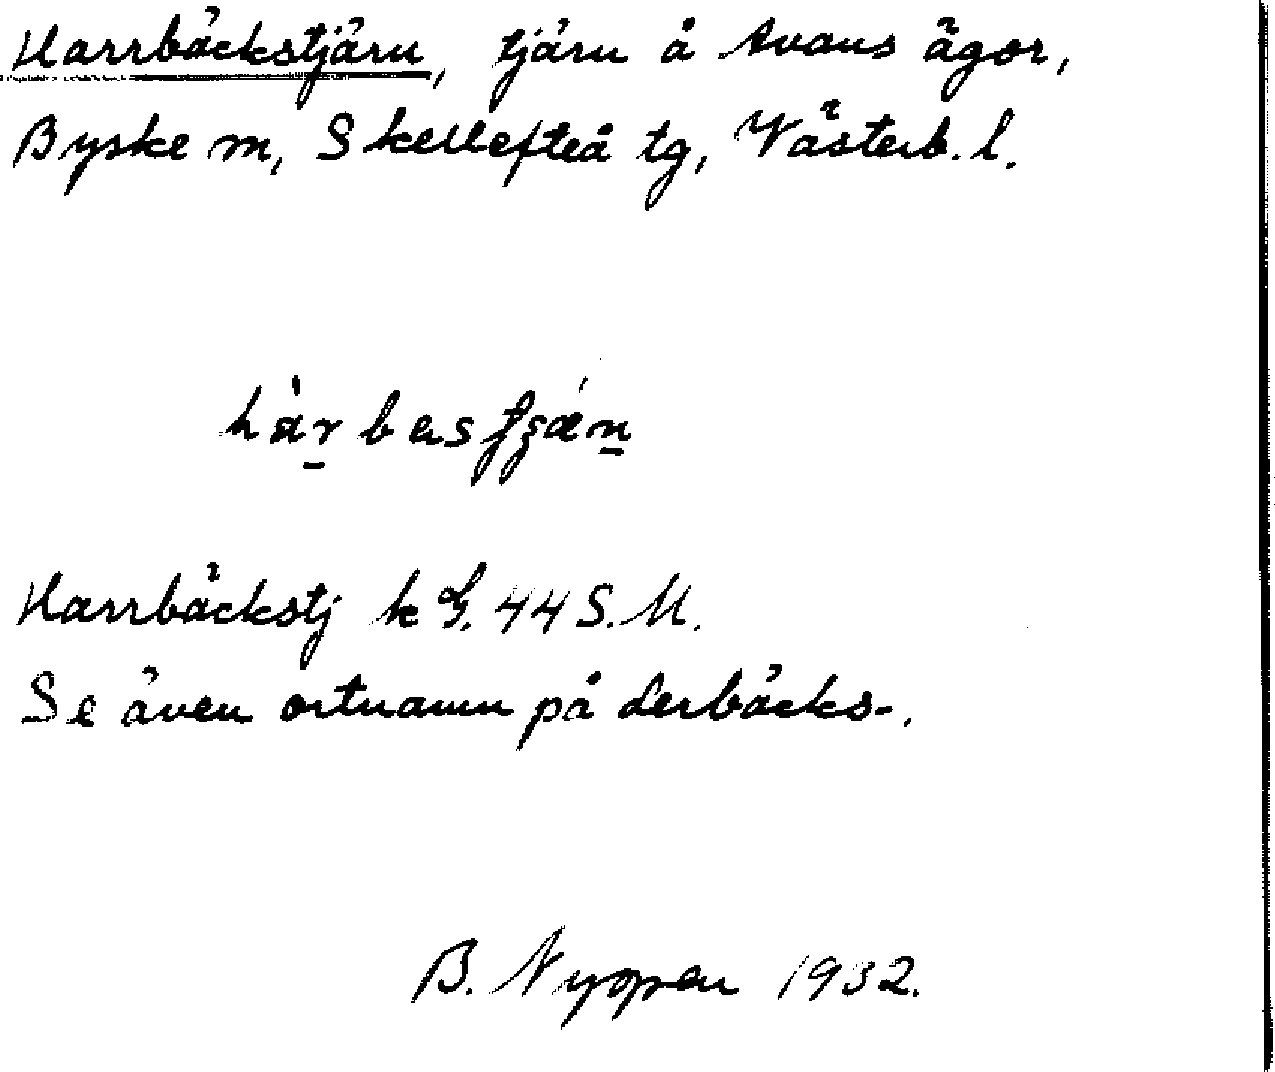 Harrbäckstjärn, tjärn å Avans ägor,
Byske sn, Skellefteå tg, Västerb. l.
Harrbäckstj k G. 44 S.M.
Se även ortnamn på derbäcks-.
B. Nyopen 1932.